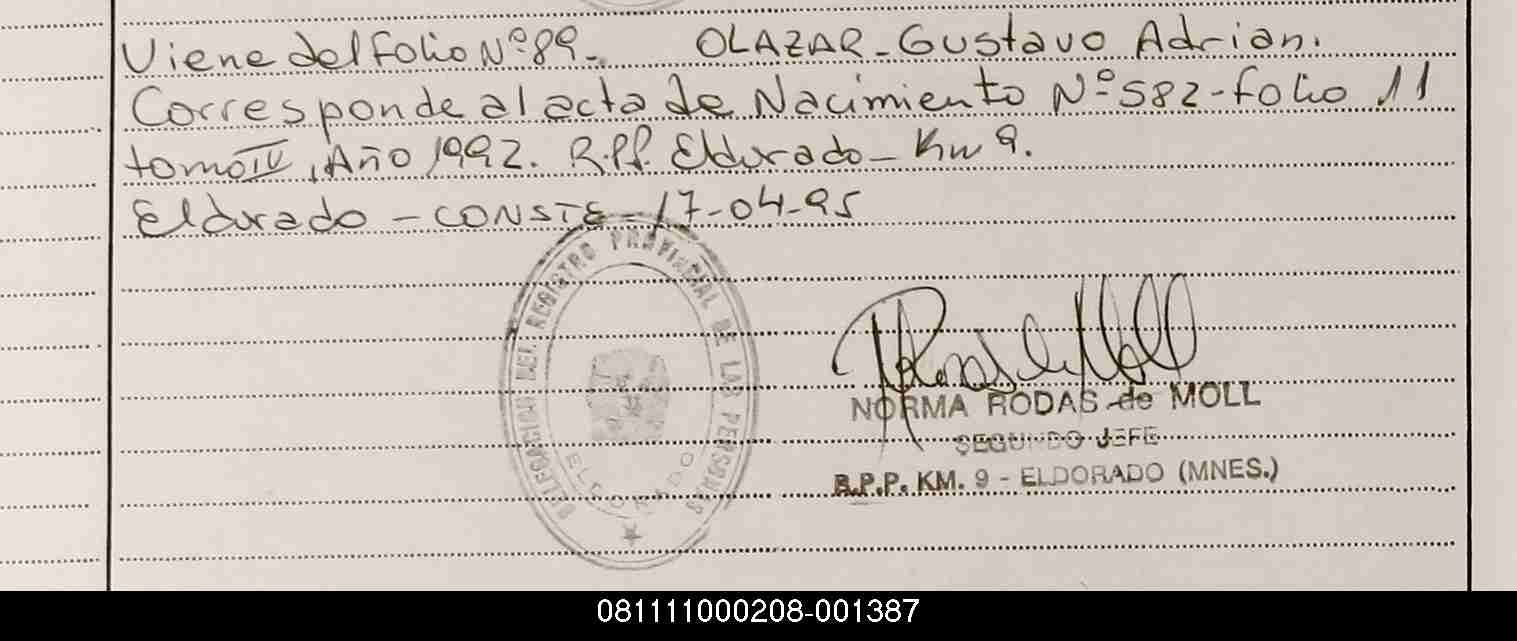 Viene del folio Nº 89_ OLAZAR_Gustavo Adrian.
Corresponde al acta de Nacimiento Nº 582-folio 11
tomo IV, Año 1992. R.P.P. Eldorado_ Km 9.
Eldorado - CONSTE - 17-04-95
DELEGACION DEL REGISTRO PROVINCIAL DE LAS PERSONAS
ELDORADO
NORMA RODAS de MOLL
SEGUNDO JEFE
R.P.P. KM. 9 - ELDORADO (MNES.)
081111000208-001387